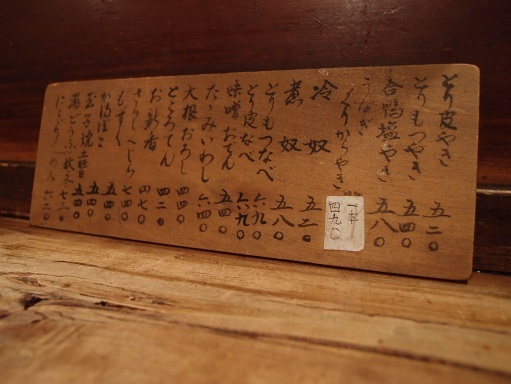 とり皮やき 五二〇
とりもつやき 五四〇
合鴨塩やき 五八〇
うなぎ
くりからやき 一本 四九〇
冷奴 五二〇
煮奴 五八〇
とりもつなべ 六九〇
とり皮なべ 六九〇
味噌おでん 五四〇
たたみいわし 六四〇
大根おろし 四四〇
ところてん 四二〇
お新香 四七〇
さらしくじら
もずく 五四〇
かまぼこ 五四〇
玉子焼 五四〇
湯どうふ
にこごり